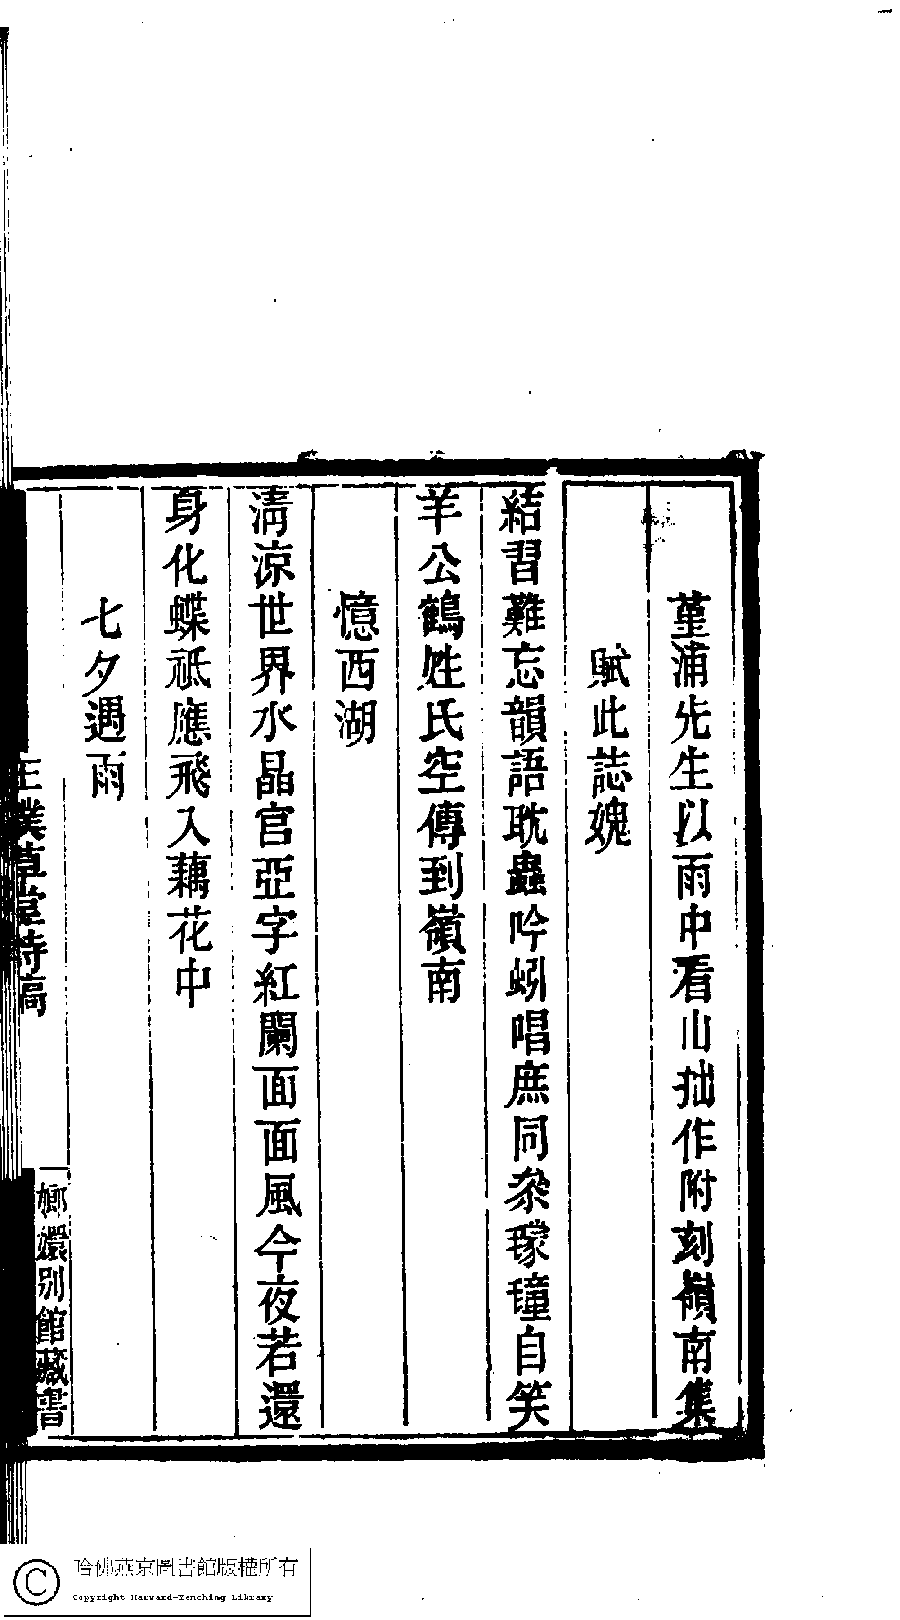 堇浦先生以雨中看山拙作附刻嶺南集
賦此誌媿
結習難忘韻語耽蟲吟蚓唱庶同叅瑑璮自笑
羊公鶴姓氏空傳到嶺南
憶西湖
清涼世界水晶宫亞字紅闌面面風今夜若還
身化蝶祗應飛入藕花中
七夕遇雨
玉檏草堂詩稿
嫏嬛別館藏書
哈佛燕京圖書館版權所有
Copyright Harvard-Yenching Library